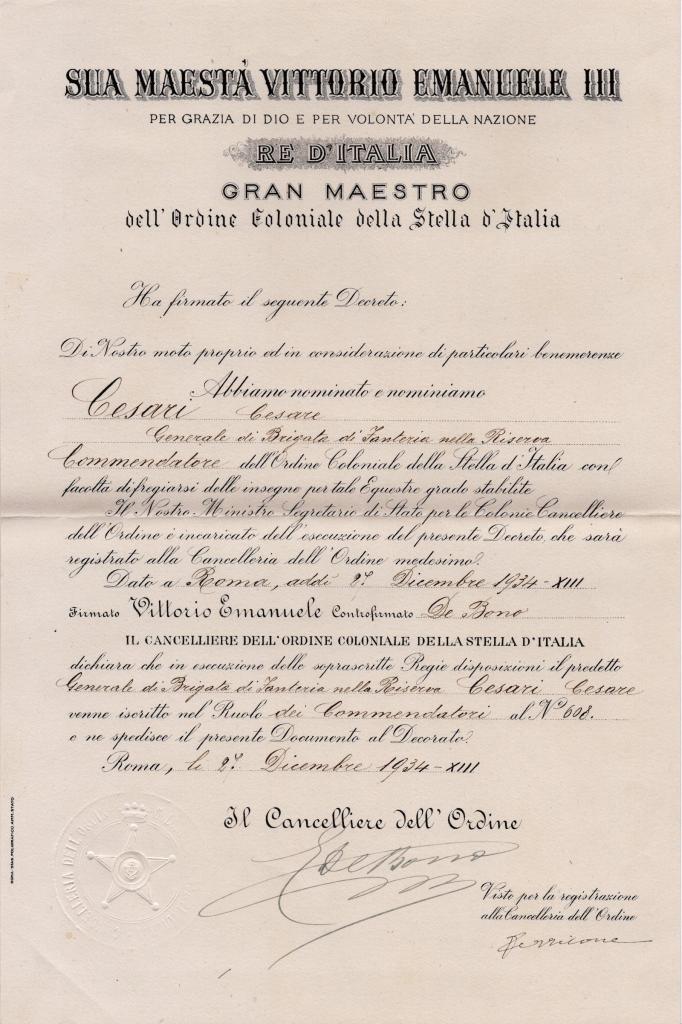 SUA MAESTÀ VITTORIO EMANUELE III
PER GRAZIA DI DIO E PER VOLONTA' DELLA NAZIONE
RE D'ITALIA
GRAN MAESTRO
dell'Ordine Coloniale della Stella d'Italia
Ha firmato il seguente Decreto:
Di Nostro moto proprio ed in considerazione di particolari benemerenze
Abbiamo nominato e nominiamo
Cesari Cesare
Generale di Brigata di Fanteria nella Riserva
Commendatore dell'Ordine Coloniale della Stella d'Italia con
facoltà di fregiarsi delle insegne per tale Equestre grado stabilite.
Il Nostro Ministro Segretario di Stato per le Colonie Cancelliere
dell'Ordine è incaricato dell'esecuzione del presente Decreto, che sarà
registrato alla Cancelleria dell'Ordine medesimo.
Dato a Roma, addì 27 Dicembre 1934-XIII
Firmato Vittorio Emanuele Controfirmato De Bono
IL CANCELLIERE DELL'ORDINE COLONIALE DELLA STELLA D'ITALIA
dichiara che in esecuzione delle soprascritte Regie disposizioni il predetto
Generale di Brigata di Fanteria nella Riserva Cesari Cesare
venne iscritto nel Ruolo dei Commendatori al N° 608.
e ne spedisce il presente Documento al Decorato.
Roma, li 27 Dicembre 1934-XIII
Il Cancelliere dell'Ordine
De Bono
Visto per la registrazione
alla Cancelleria dell'Ordine